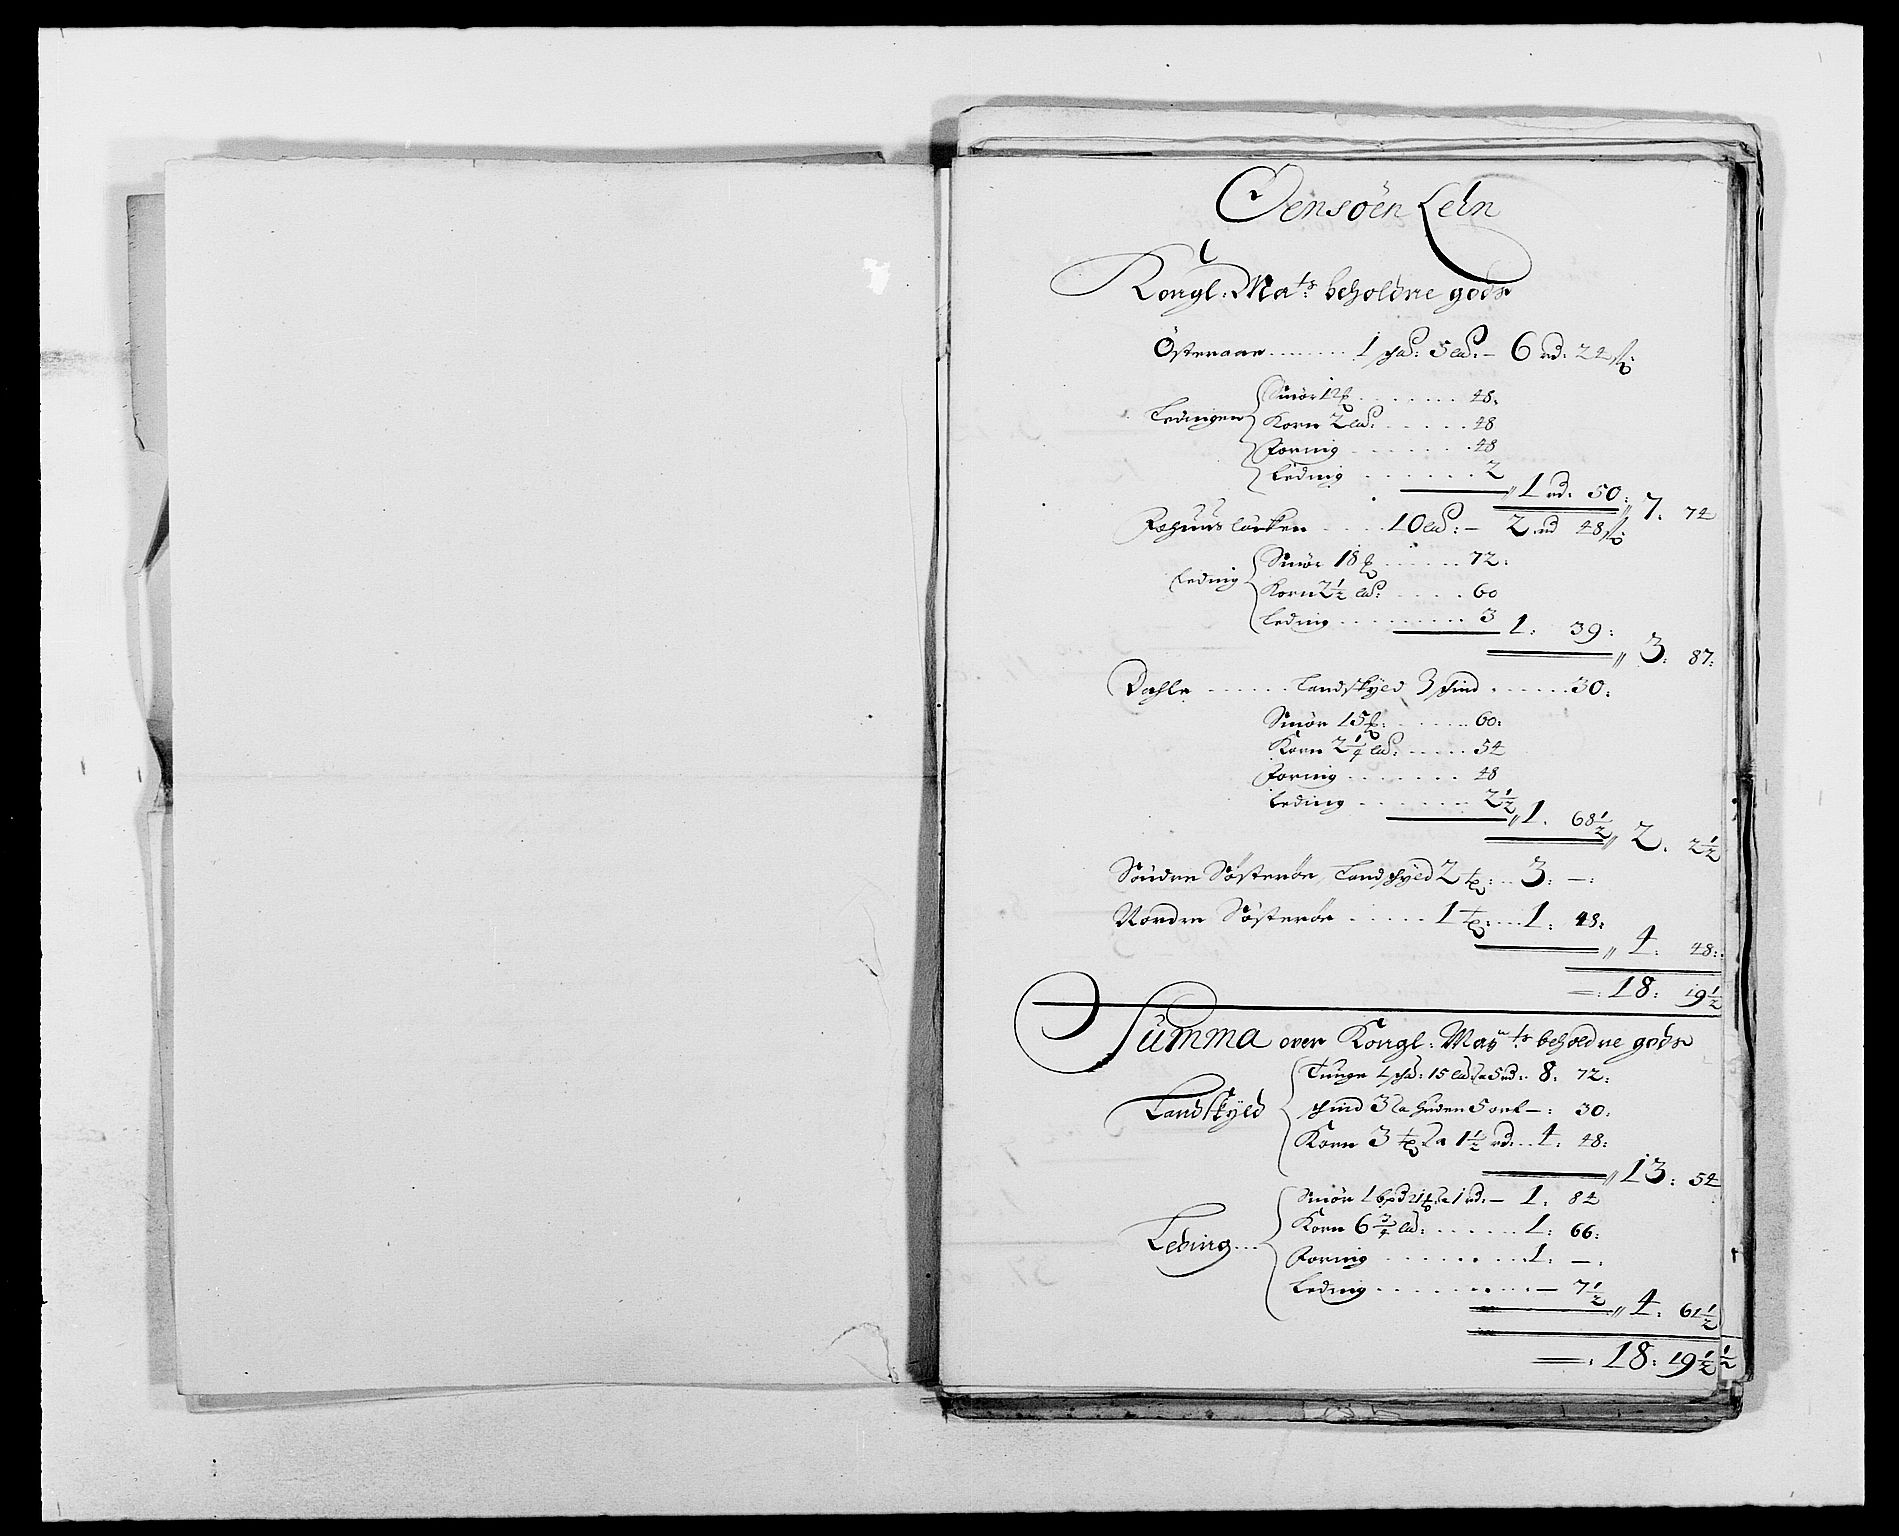 Oensöen Lehn
Kongl: Ma^ts: beholdne gods
Österaae ........ 1 skd: 5 ld: – 6 rd: 24 sk
Ledingen
Smör 12 ........ 48:
Korn 2 ld: ...... 48
Forring ........ 48
Leding ........ 2
1 rd: 50: // 7. 74
..... 10 ld: – 2 rd 48 sk
Leding
Smör 18 ...... 72:
Korn 2½ ld: ..... 60
Leding ......... 3
1: 39: // 3: 87:
Dahle ...... Landskyld 3 skind ...... 30:
Smör 15 ...... 60:
Korn 2¼ ld: ..... 54
Forring ....... 48
Leding ....... 2½
// 1. 68½ // 2. 2½
Söndre Sösteröe, Landskyld 2 tp: .. 3: –:
Nordre Sösteröe ..... 1 tp: ... 1. 48:
// 4. 48:
=: 18: 19½
Summa over Kongl: May^ts: beholdne gods
Landskyld
Tunge 1 skd: 15 ld a 5 rd: 8. 72:
skind 3 a huden 5 ort –: 30:
Korn 3 tp a 1½ rd: .. 4. 48:
// 13: 54
Leding ...
Smör 1 bpd 21 a 1 rd: – 1. 84
Korn 6¾ ld: ........ 1: 66:
Forring ........ 1. –.
Leding ........ – 7½
// 4. 61½
=: 18: 19½ ½